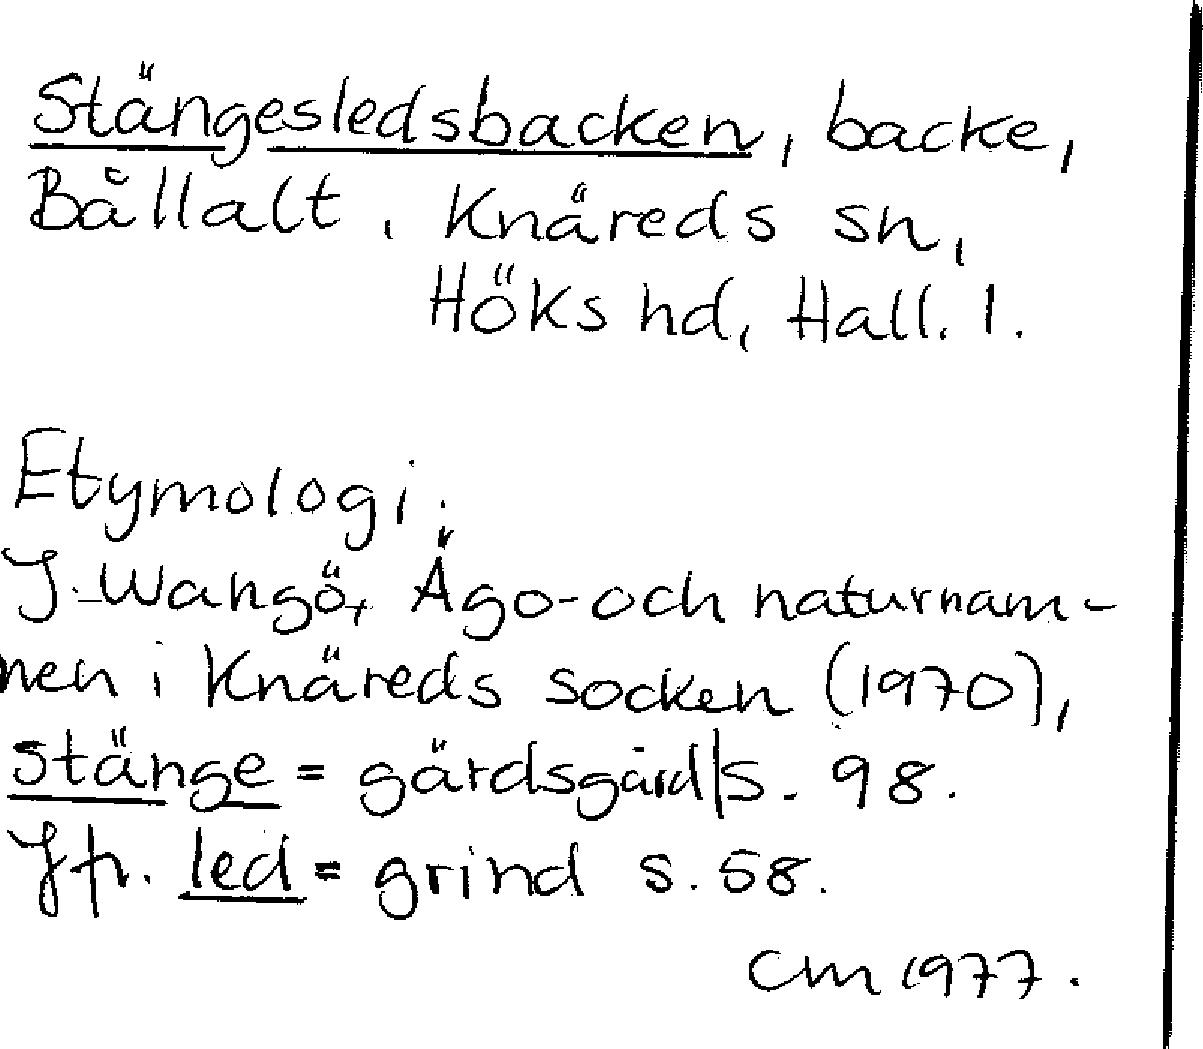 Stängesledsbacken, backe,
Bållalt, Knäreds sn,
Höks hd, Hall. l.
Etymologi.
J. Wangö, Ägo- och naturnam-
nen i Knäreds socken (1970),
stänge = gärdsgård s. 98.
Jfr. led = grind s. 58.
CM 1977.